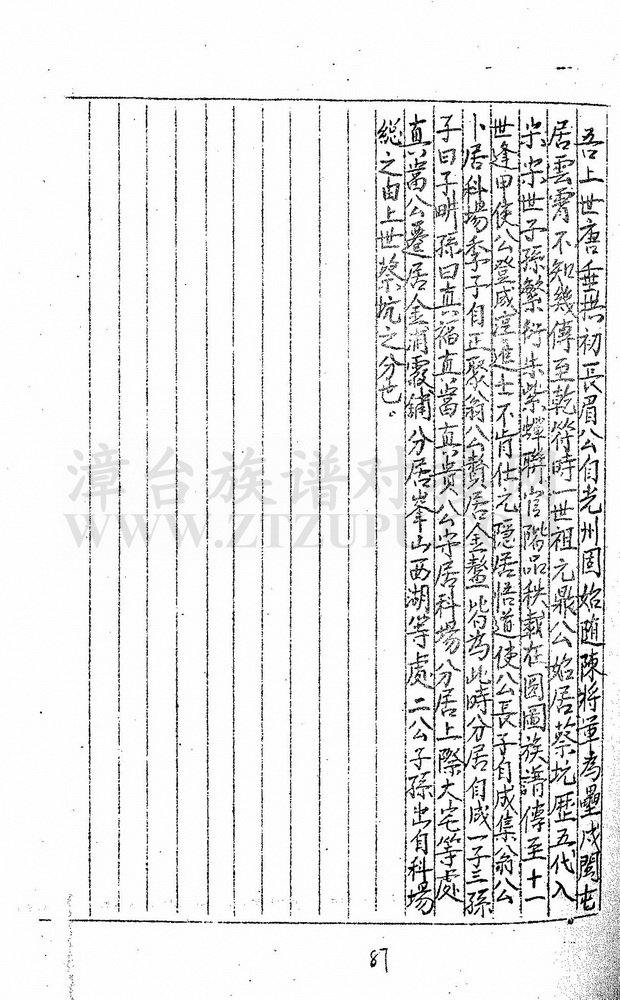 吾上世唐垂拱初長眉公自光州固始随陳將軍為壘戍閩屯
居雲霄不知幾傳至乾符時一世祖元鼎公始居蔡坑歷五代入
宋宋世子孫繁衍朱紫蟬聯官階品秩載在圖族譜傳至十一
世逢甲使公登咸淳進士不肯仕元隱居悟道使公長子自成集翁公
卜居科場季子自正聚翁公贅居金鰲皆為此時分居自成一子三孫
子曰子畊孫曰真福真當真贵八公守居科場分居上際大宅等處
真當公遷居金浦霞鋪分居峯山西湖等處二公子孫出自科場
総之由上世蔡坑之分也。
漳台族谱对
WWW.ZIZUPU
87